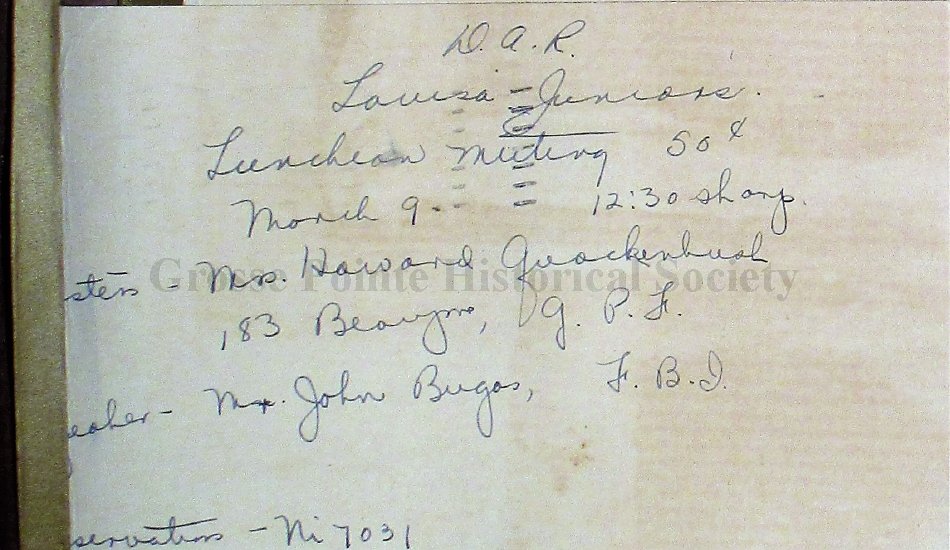 D.A.R.
Louisa - Juniors.
Luncheon meeting 50¢
March 9. 12:30 sharp.
stess - Mrs. Howard Quackenbush
Grosse Pointe Historical Society
183 Beaupre, G. P. F.
eaker - Mr. John Bugas, F. B. I.
servations - Ni 7031